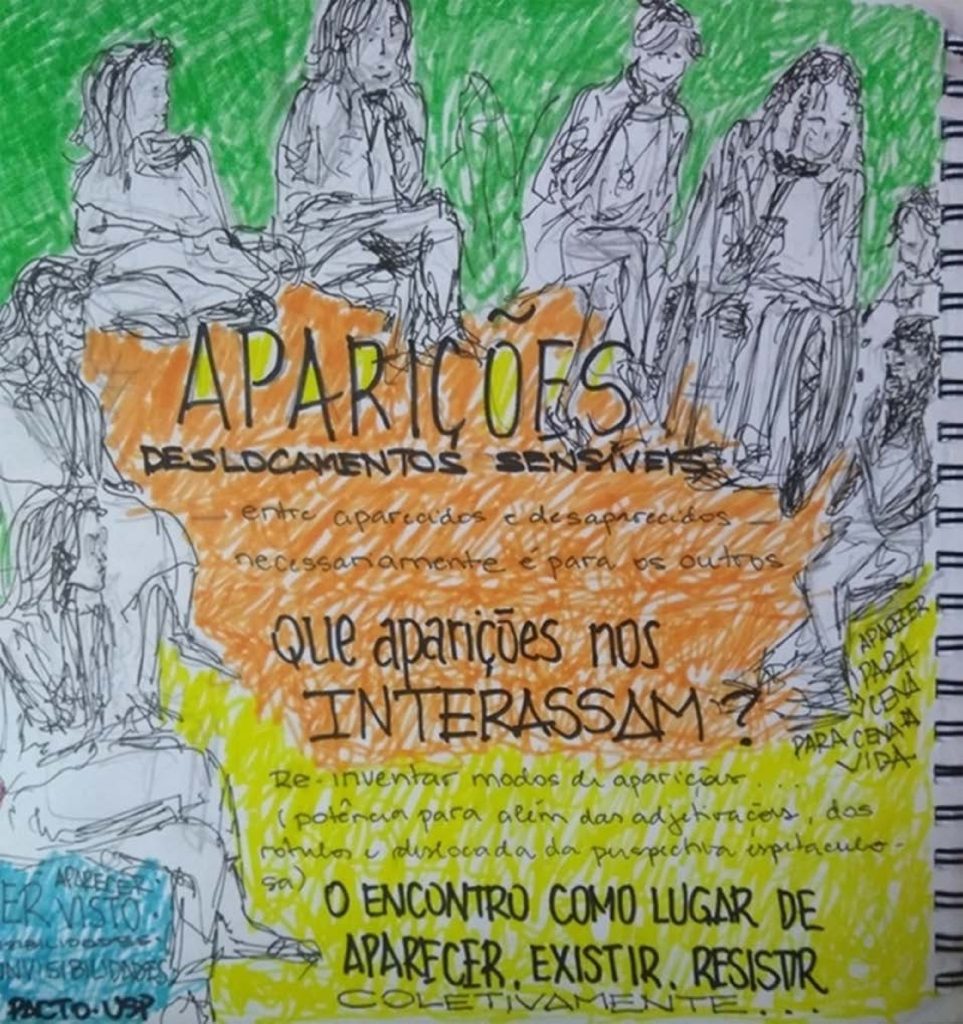 APARIÇÕES
DESLOCAMENTOS SENSÍVEIS
— entre aparecidos e desaparecidos —
necessariamente é para os outros
QUE aparições nos
INTERASSAM?
RE-inventar modos de aparição...
(potência para além das adjetivações, dos
rótulos e deslocada da perspectiva espetaculo-
sa)
O ENCONTRO COMO LUGAR DE
APARECER. EXISTIR. RESISTIR
COLETIVAMENTE...
APARECER
PARA
CENA
PARA CENA
VIDA
APARECER
ER VISTO.
INVISIBILIDADES
PACTO-USP